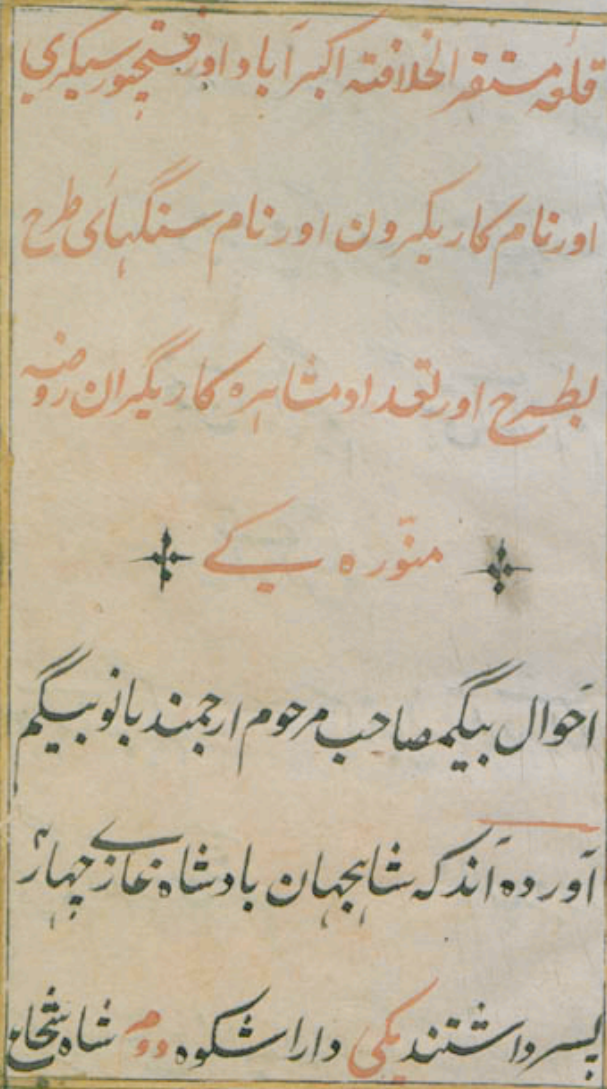 قلعہ مستقر الخلافتہ اکبرآباد اور فتحپور سیکری
اور نام کاریگرون اور نام سنگہائی طرح
بطرح اور تعداد مشاہرہ کاریگران روضہ
منوّرہ کے
احوال بیگم صاحب مرحوم ارجمند بانو بیگم
آوردہ اند کہ شاہجہان بادشاہ غازے چہار
پسر داشتند یکی دارا شکوہ دوم شاہ شجاع